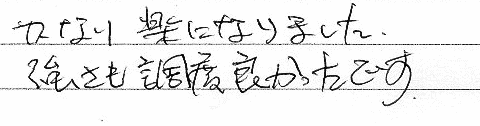 かなり楽になりました.
強さも調度良かったです.